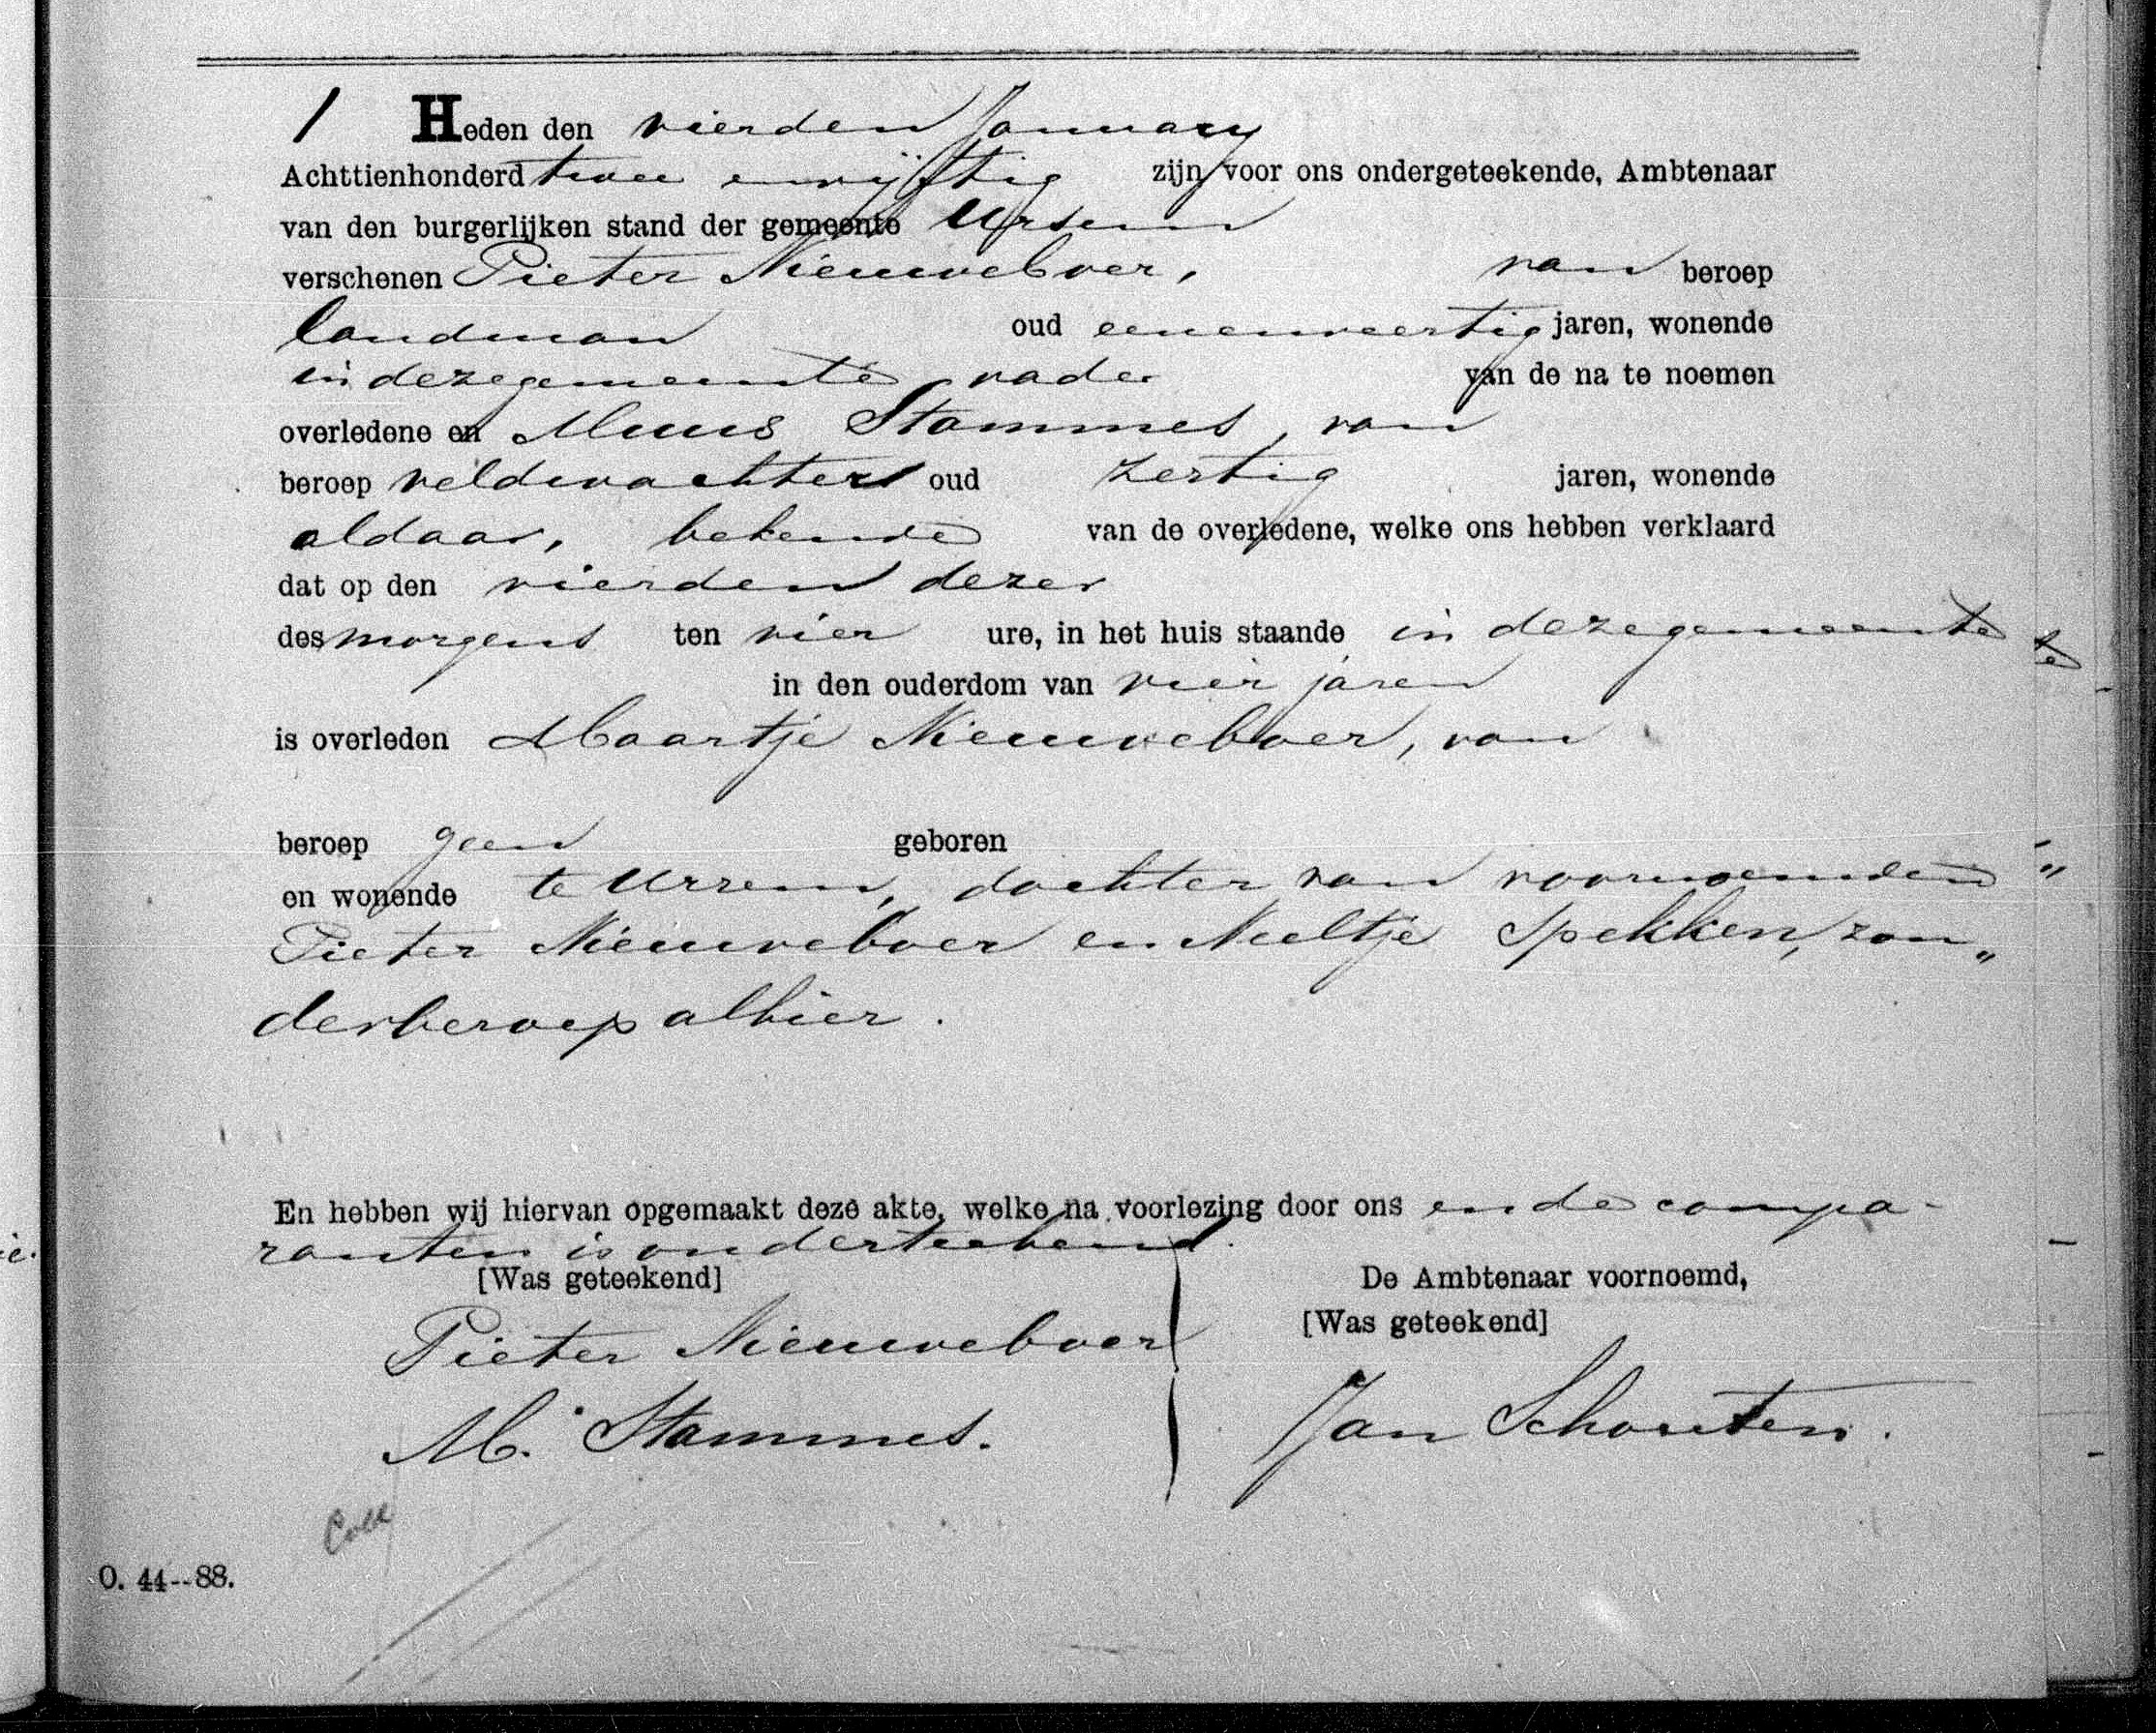 1 Heden den vierden January
Achttienhonderd twee envijftig zijn voor ons ondergeteekende, Ambtenaar
van den burgerlijken stand der gemeente Ursem
verschenen Pieter Nieuweboer, van beroep
landman oud eenenveertig jaren, wonende
in deze gemeente vader van de na te noemen
overledene en Muus Stammes, van
beroep veldwachter oud zestig jaren, wonende
aldaar, bekende van de overledene, welke ons hebben verklaard
dat op den vierden dezer
des morgens ten vier ure, in het huis staande in deze gemeente
in den ouderdom van vier jaren
is overleden Maartje Nieuweboer, van
beroep geen geboren
en wonende te Ursem, dochter van voornoemden
Pieter Nieuweboer en Neeltje Spekken, zon„
der beroep alhier.
En hebben wij hiervan opgemaakt deze akte, welke na voorlezing door ons en de compa-
ranten is onderteekend.
[Was geteekend] De Ambtenaar voornoemd,
Pieter Nieuweboer [Was geteekend]
M. Stammes. Jan Schouten.
O. 44--88.